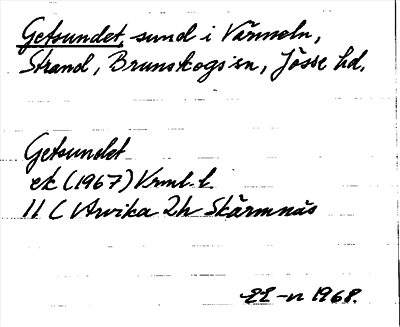 Getsundet, sund i Värmeln,
Strand, Brunskogs sn, Jösse hd.
Getsundet
ek (1967) Vrml. l.
11 C Arvika 2h Skärmnäs
EE-n 1968.